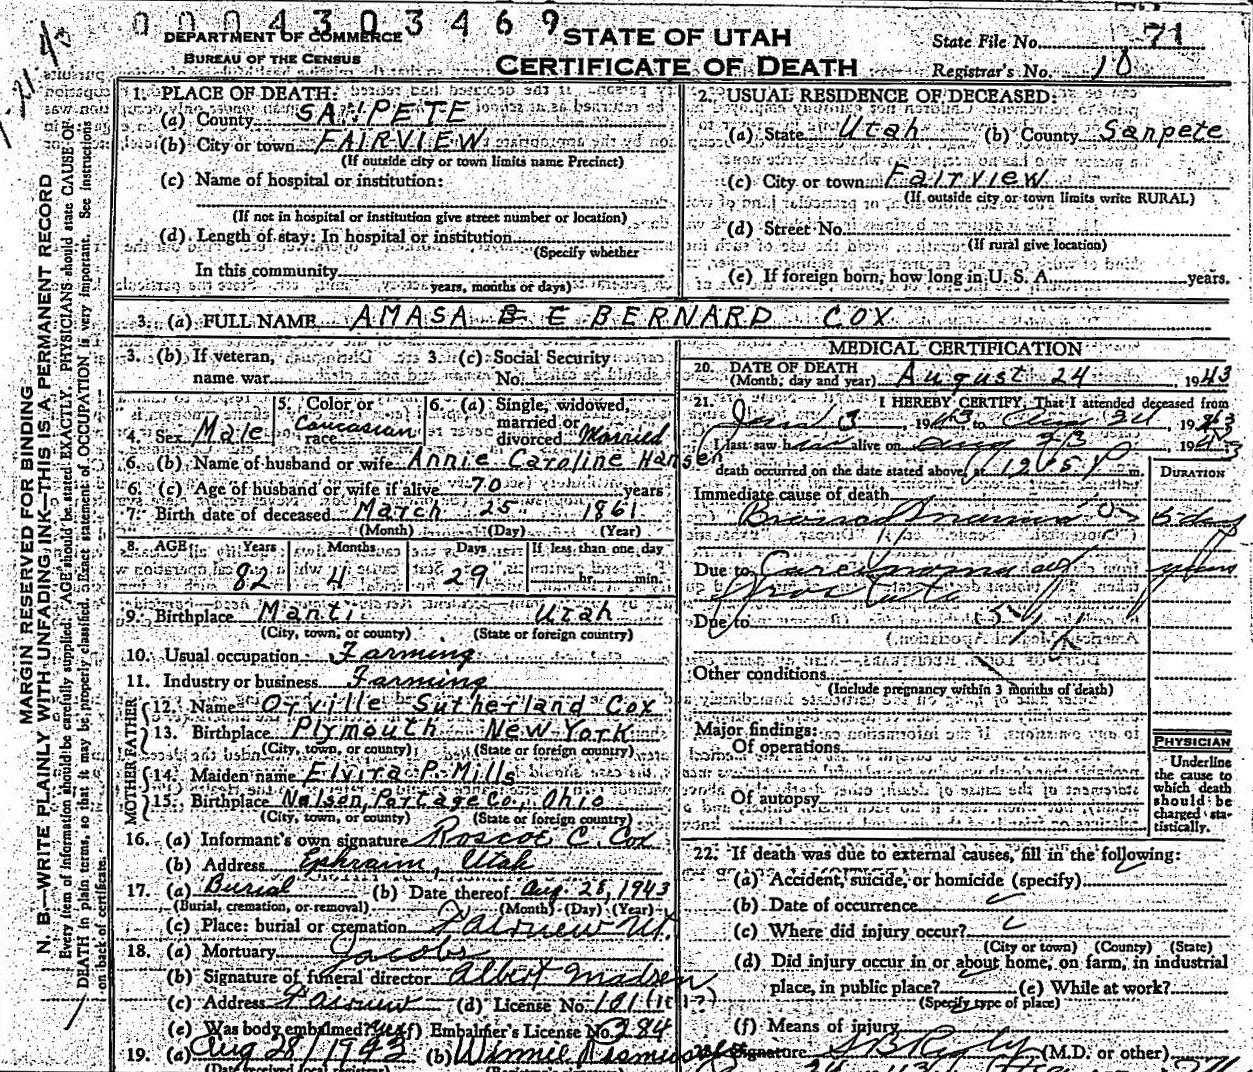 0 0 0 4 3 0 3 4 6 9
DEPARTMENT OF COMMERCE
BUREAU OF THE CENSUS
STATE OF UTAH
CERTIFICATE OF DEATH
State File No. 71
Registrar's No. 10
MARGIN RESERVED FOR BINDING
N. B.—WRITE PLAINLY WITH UNFADING INK—THIS IS A PERMANENT RECORD
Every item of information should be carefully supplied. AGE should be stated EXACTLY. PHYSICIANS should state CAUSE OF
DEATH in plain terms, so that it may be properly classified. Exact statement of OCCUPATION is very important. See instructions
on back of certificate.
1. PLACE OF DEATH:
(a) County SANPETE
(b) City or town FAIRVIEW
(If outside city or town limits name Precinct)
(c) Name of hospital or institution:
(If not in hospital or institution give street number or location)
(d) Length of stay: In hospital or institution
(Specify whether
In this community
years, months or days)
2. USUAL RESIDENCE OF DECEASED:
(a) State Utah (b) County Sanpete
(c) City or town Fairview
(If outside city or town limits write RURAL)
(d) Street No.
(If rural give location)
(e) If foreign born, how long in U. S. A. years.
3. (a) FULL NAME AMASA B E BERNARD COX
3. (b) If veteran, 3. (c) Social Security
name war No.
4. Sex Male 5. Color or race Caucasian 6. (a) Single, widowed, married or divorced Married
6. (b) Name of husband or wife Annie Caroline Hansen
6. (c) Age of husband or wife if alive 70 years
7. Birth date of deceased March 25 1861
(Month) (Day) (Year)
8. AGE Years Months Days If less than one day
82 4 29 hr. min.
9. Birthplace Manti Utah
(City, town, or county) (State or foreign country)
10. Usual occupation Farming
11. Industry or business Farming
FATHER
12. Name Orville Sutherland Cox
13. Birthplace Plymouth New York
(City, town, or county) (State or foreign country)
MOTHER
14. Maiden name Elvira P. Mills
15. Birthplace Nelson, Portage Co., Ohio
(City, town, or county) (State or foreign country)
16. (a) Informant's own signature Roscoe C. Cox
(b) Address Ephraim, Utah
17. (a) Burial (b) Date thereof Aug. 28, 1943
(Burial, cremation, or removal) (Month) (Day) (Year)
(c) Place: burial or cremation Fairview Ut.
18. (a) Mortuary Jacobs
(b) Signature of funeral director Albert Madsen
(c) Address Fairview (d) License No. 101
(e) Was body embalmed? yes (f) Embalmer's License No. 384
19. (a) Aug 28/1943 (b) Winnie
(Date received local registrar)
MEDICAL CERTIFICATION
20. DATE OF DEATH
(Month, day and year) August 24, 1943
21. I HEREBY CERTIFY, That I attended deceased from
3, 1943 to Aug 24, 1943
I last saw him alive on Aug 23, 1943
death occurred on the date stated above, at m.
DURATION
Immediate cause of death
5 days
Due to Carcinoma of years
Prostate
Due to
Other conditions
(Include pregnancy within 3 months of death)
Major findings:
Of operations
Of autopsy
PHYSICIAN
Underline
the cause to
which death
should be
charged sta-
tistically.
22. If death was due to external causes, fill in the following:
(a) Accident, suicide, or homicide (specify)
(b) Date of occurrence
(c) Where did injury occur?
(City or town) (County) (State)
(d) Did injury occur in or about home, on farm, in industrial
place, in public place? (e) While at work?
(Specify type of place)
(f) Means of injury
23. Signature (M.D. or other)